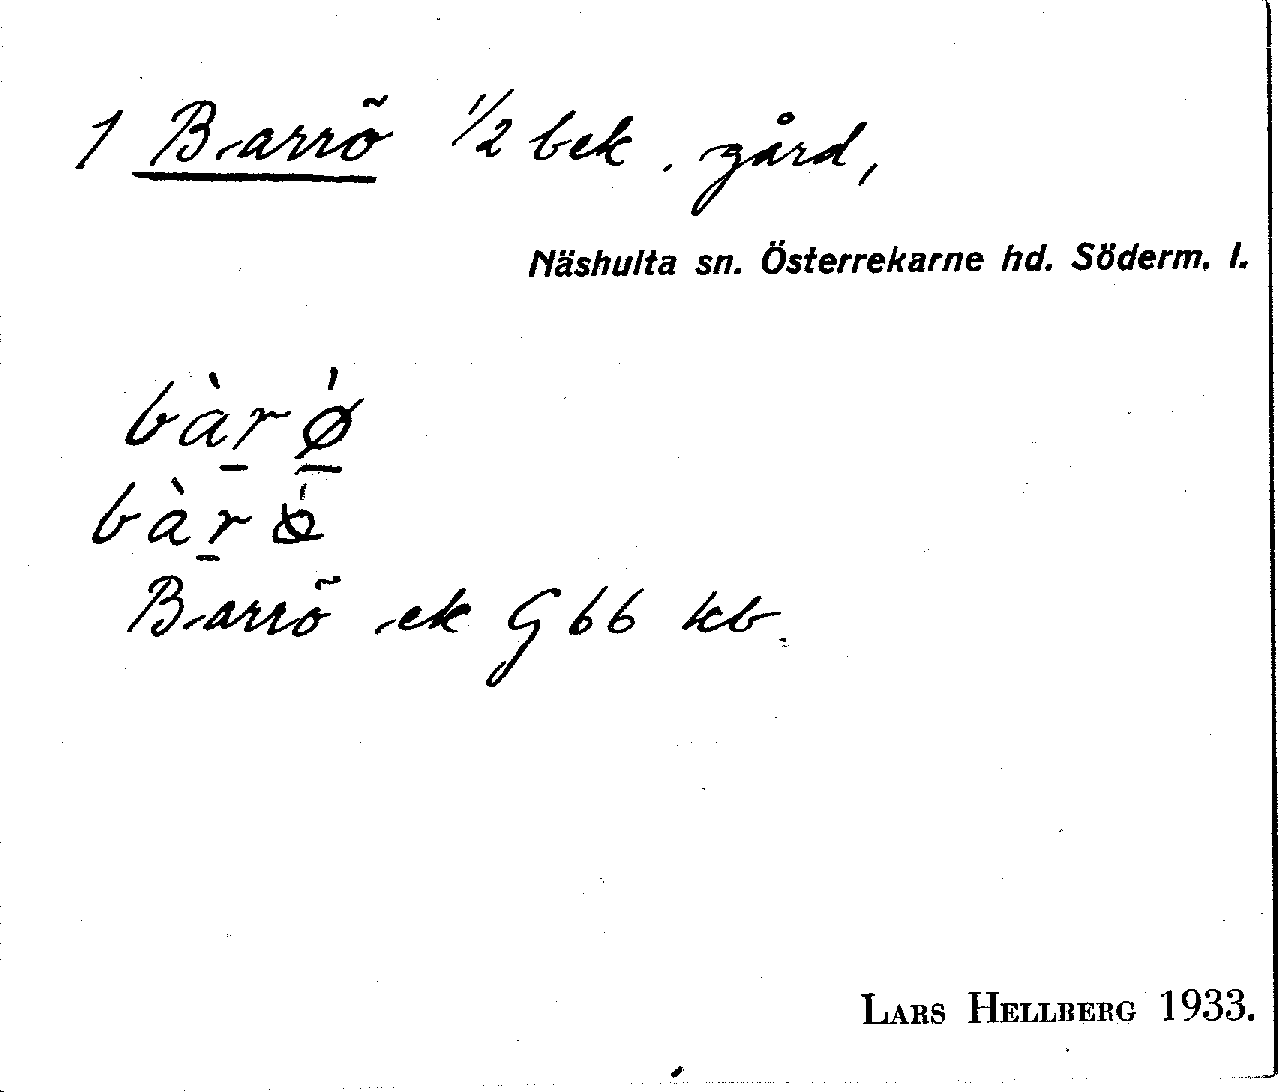 1 Barrö 1/2 bek. gård,
Näshulta sn. Österrekarne hd. Söderm. l.
bàr̲ǿ̲
bàr̲
Barrö ek G66 kb.
LARS HELLBERG 1933.